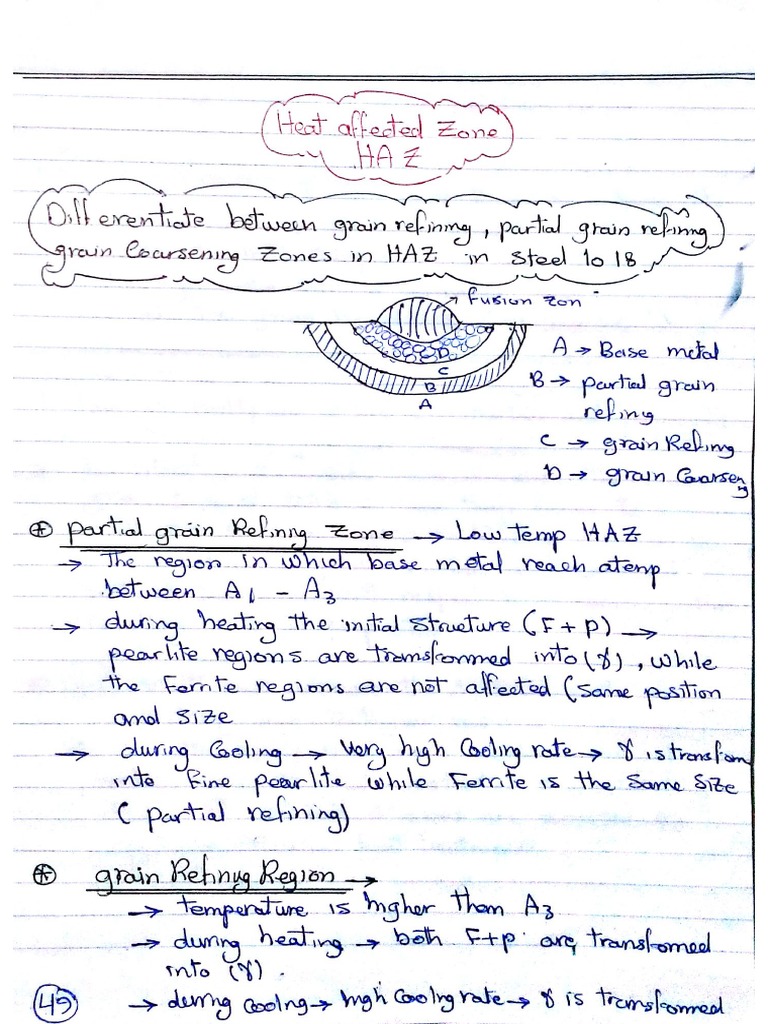 Heat affected Zone
HAZ
Differentiate between grain refining, partial grain refining
grain Coarsening Zones in HAZ in Steel 1018
fusion zon
A → Base metal
B → partial grain
refing
C → grain Refing
D → grain Coarseng
D
C
B
A
⊛ partial grain Refining Zone → Low temp HAZ
→ The region in which base metal reach atemp
between A1 - A3
→ during heating the initial structure (F+P) →
pearlite regions are transformed into (γ), while
the Ferrite regions are not affected (same position
and size
→ during Cooling → Very high Cooling rate → γ is transform
into fine pearlite while Ferrite is the same size
( partial refining)
⊛ grain Refining Region →
→ temperature is higher than A3
→ during heating → both F+p are transformed
into (γ).
→ during cooling → high Cooling rate → γ is transformed
49